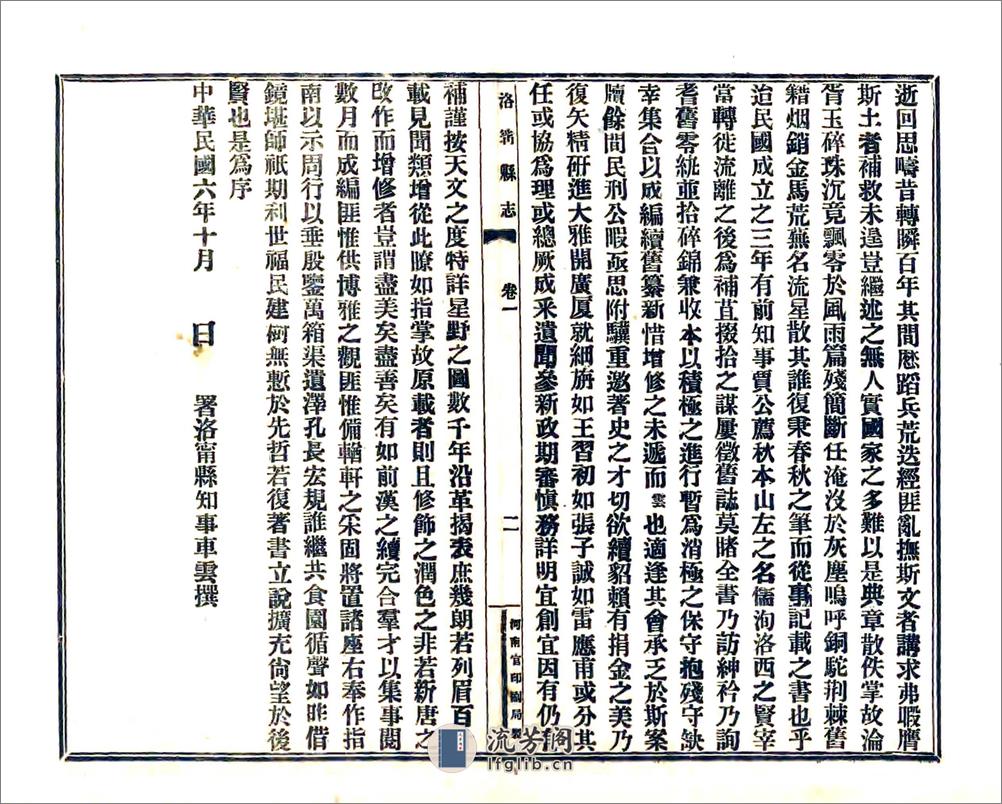 逝回思疇昔轉瞬百年其間歷蹈兵荒迭經匪亂撫斯文者講求弗暇膺
斯土者補救未遑豈繼述之無人實國家之多難以是典章散佚掌故淪
胥玉碎珠沉竟飄零於風雨篇殘簡斷任淹沒於灰塵嗚呼銅駝荆棘舊
籍烟銷金馬荒蕪名流星散其誰復秉春秋之筆而從事記載之書也乎
迨民國成立之三年有前知事賈公薦秋本山左之名儒洵洛西之賢宰
當轉徙流離之後爲補苴掇拾之謀屢徵舊誌莫賭全書乃訪紳衿乃詢
耆舊零紈並拾碎錦兼收本以積極之進行暫爲消極之保守抱殘守缺
幸集合以成編續舊纂新惜增修之未遞而雲也適逢其會承乏於斯案
牘餘間民刑公暇亟思附驥重邀著史之才切欲續貂賴有捐金之美乃
復矢精研進大雅開廣厦就細旃如王習初如張子誠如雷應甫或分其
任或協爲理或總厥成釆遺聞參新政期審愼務詳明宜創宜因有仍有
洛甯縣志
卷一
二
河南官印刷局製
補謹按天文之度特詳星野之圖數千年沿革揭表庶幾朗若列眉百
載見聞類增從此瞭如指掌故原載者則且修飾之潤色之非若新唐之
改作而增修者豈謂盡美矣盡善矣有如前漢之續完合羣才以集事閱
數月而成編匪惟供博雅之觀匪惟備輶軒之采固將置諸座右奉作指
南以示周行以垂殷鑒萬箱渠遺澤孔長宏規誰繼共食園循聲如昨借
鏡堪師祇期利世福民建樹無慙於先哲若復著書立說擴充尙望於後
賢也是爲序
中華民國六年十月 日 署洛甯縣知事車雲撰
流芳阁
lfglib.cn